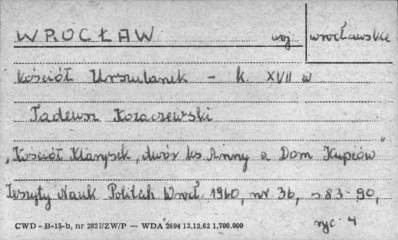 WROCŁAW woj wrocławskie
Kościół Urszulanek - k. XVII w
Tadeusz Kozaczewski
"Kościół Klarysek, dwór ks Anny a Dom Kupców"
Zeszyty Nauk Politech Wrocł. 1960, nr. 36, s 83-90,
ryc. 4
CWD - B-15-b, nr 2827/ZW/P — WDA 2694 13.12.62 1.700.000